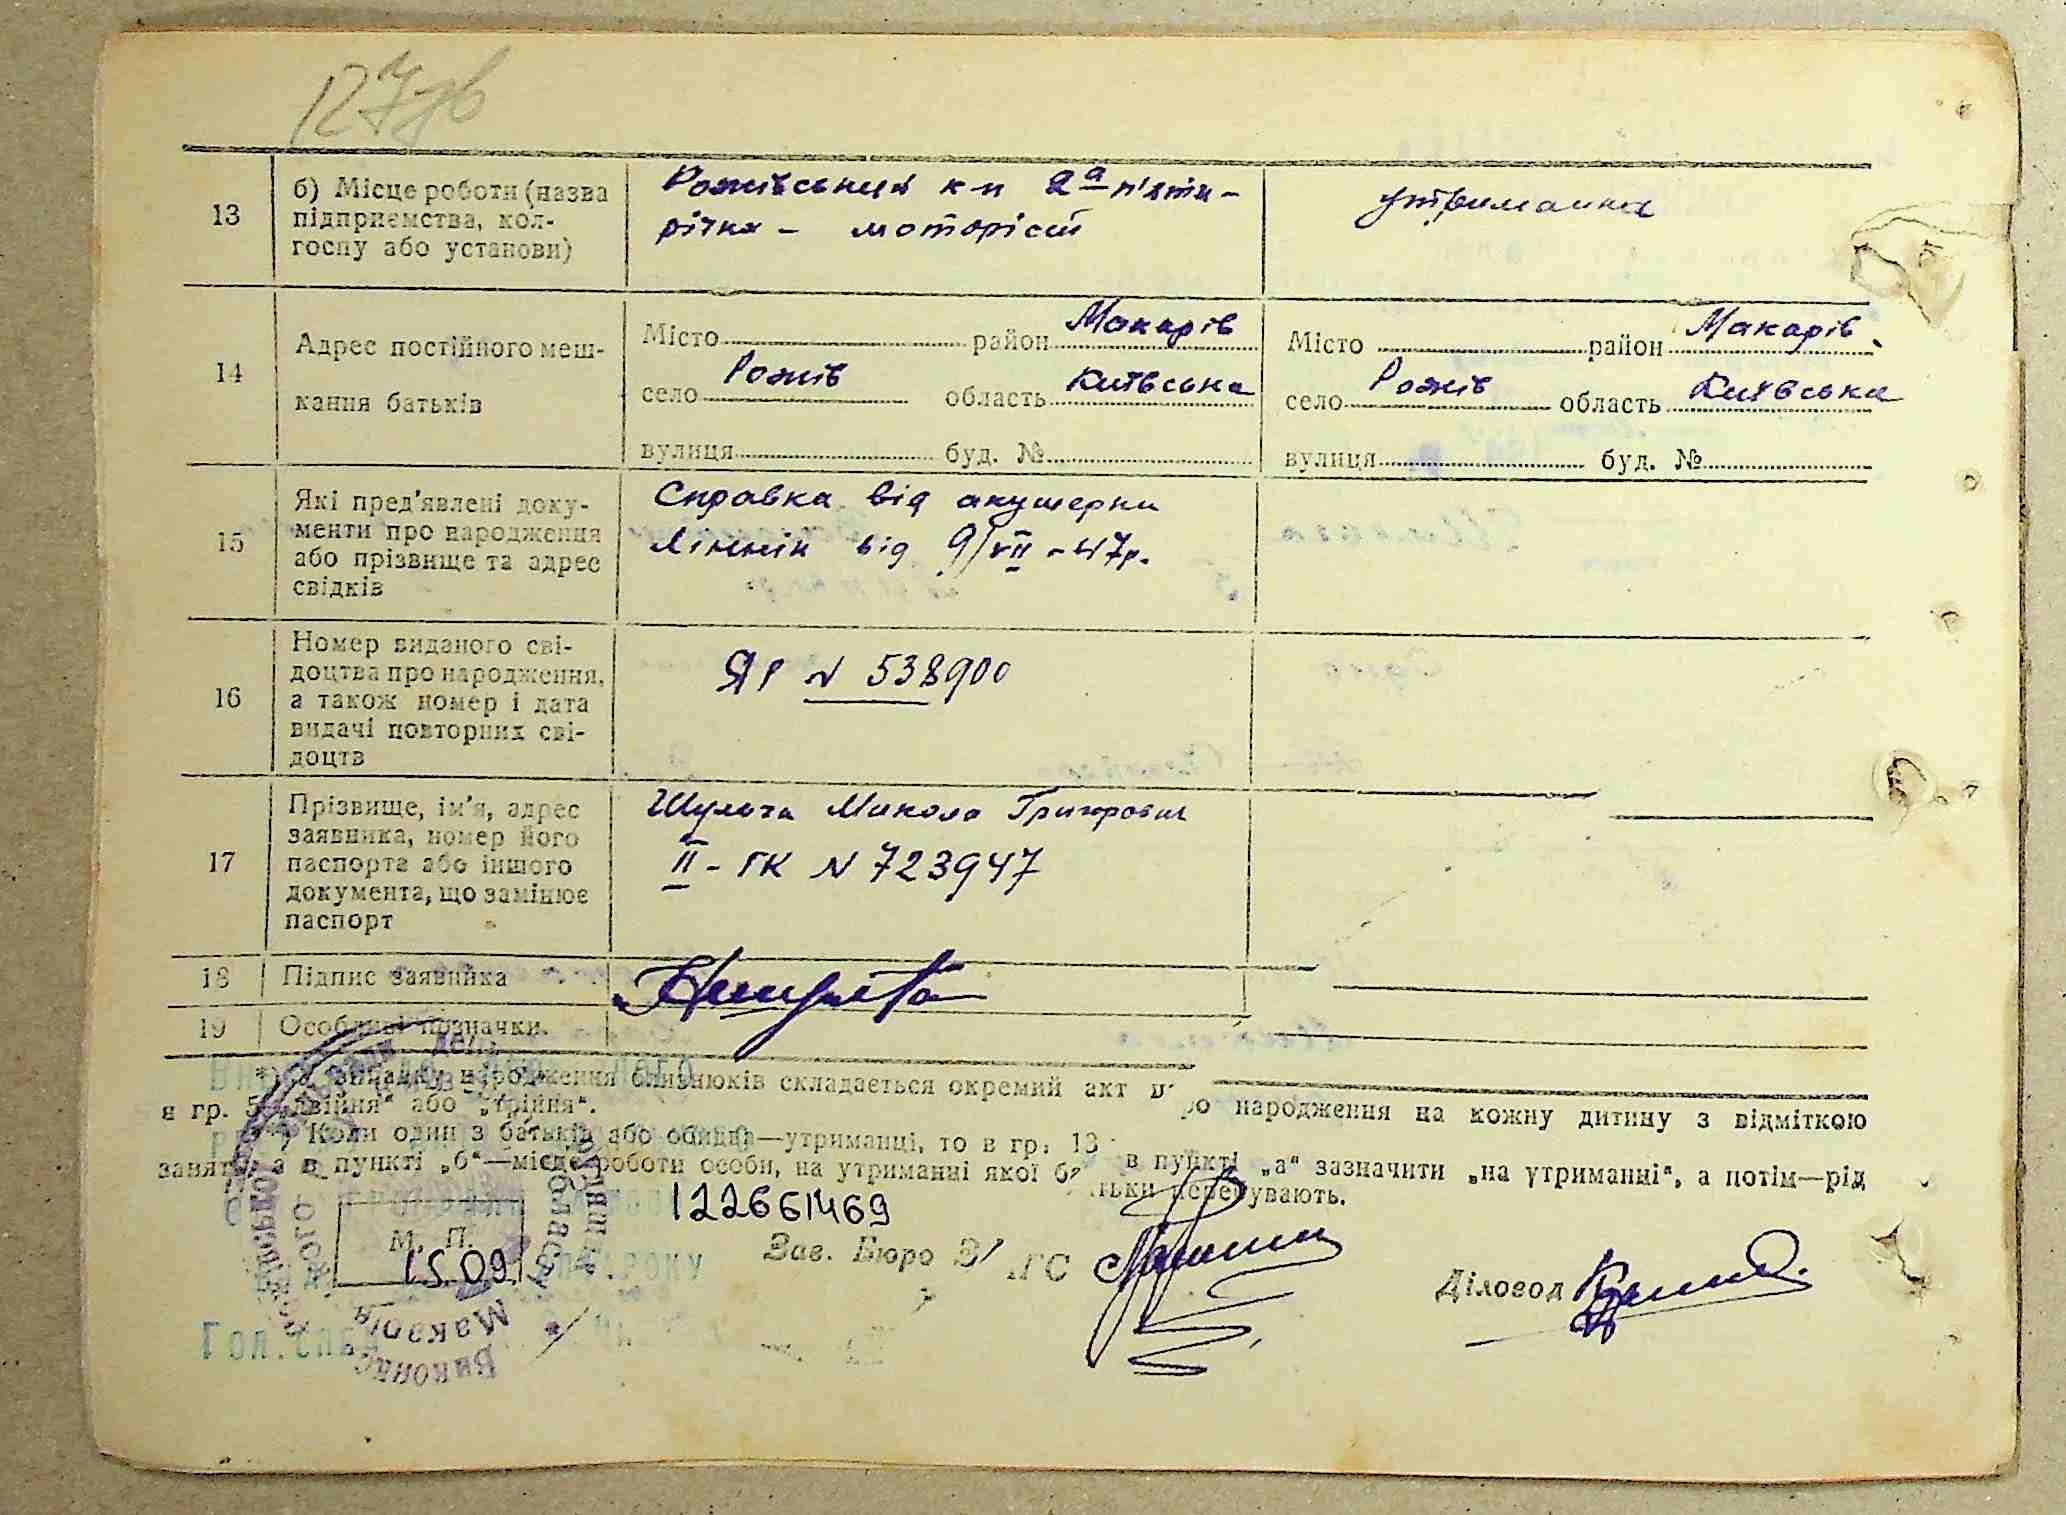 127зв
13
б) Місце роботи (назва
підприємства, кол-
госпу або установи)
Рожівський к-п 2а п'яти-
річка - моторіст
утриманка
14
Адрес постійного меш-
кання батьків
Місто район Макарів
село Рожів область Київська
вулиця буд. №
Місто район Макарів
село Рожів область Київська
вулиця буд. №
15
Які пред'явлені доку-
менти про народження
або прізвище та адрес
свідків
Справка від акушерки
від 9/VII-47р.
16
Номер виданого сві-
доцтва про народження,
а також номер і дата
видачі повторних сві-
доцтв
ЯР N 538900
17
Прізвище, ім'я, адрес
заявника, номер його
паспорта або іншого
документа, що замінює
паспорт
Шульга Микола Григорович
II-ГК N 723947
18
Підпис заявника
19
Особливі позначки.
*) В випадку народження близнюків складається окремий акт про народження на кожну дитину з відміткою
в гр. 5 „двійня“ або „трійня“.
**) Коли один з батьків або обидва—утриманці, то в гр. 13 в пункті „а“ зазначити „на утриманні“, а потім—рід
занять, а в пункті „б“—місце роботи особи, на утриманні якої батьки перебувають.
122661469
М. П.
15.09
Зав. Бюро ЗАГС
Діловод